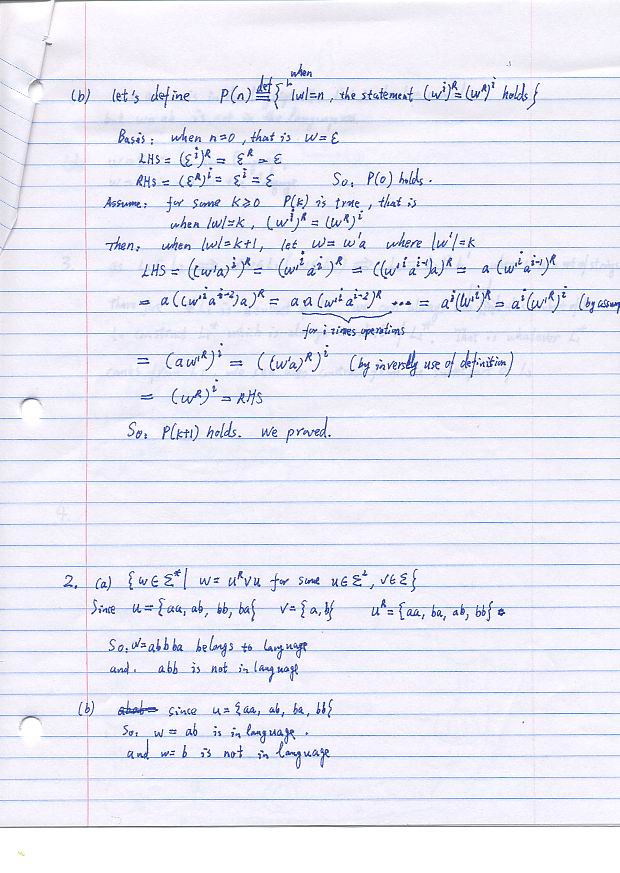 when
(b) let's define P(n) def≡ { |w|=n, the statement (w^i)^R = (w^R)^i holds }
Basis: when n=0, that is w=ε
LHS = (ε^i)^R = ε^R = ε
RHS = (ε^R)^i = ε^i = ε So, P(0) holds.
Assume: for some K≥0 P(k) is true, that is
when |w|=k, (w^i)^R = (w^R)^i
Then: when |w|=k+1, let w=w'a where |w'|=k
LHS = ((w'a)^i)^R = (w'^i a^i)^R = ((w'^i a^{i-1})a)^R = a(w'^i a^{i-1})^R
= a((w'^i a^{i-2})a)^R = aa(w'^i a^{i-2})^R ... = a^i(w'^i)^R = a^i(w'^R)^i (by assum
for i times operations
= (aw'^R)^i = ((w'a)^R)^i (by inversly use of definition)
= (w^R)^i = RHS
So, P(k+1) holds. We proved.
2. (a) {w∈Σ* | w=u^R v u for some u∈Σ², v∈Σ}
Since u={aa, ab, bb, ba} v={a,b} u^R={aa, ba, ab, bb}
So, w=abbba belongs to language
and. abb is not in language
(b) abab= since u={aa, ab, ba, bb}
So, w=ab is in language.
and w=b is not in language